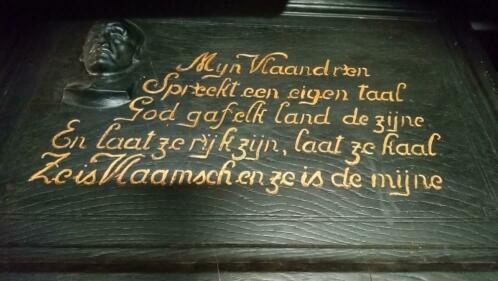 Myn Vlaandren
Spreekt een eigen taal
God gaf elk land de zijne
En laat ze rijk zijn, laat ze kaal
Ze is Vlaamsch en ze is de mijne